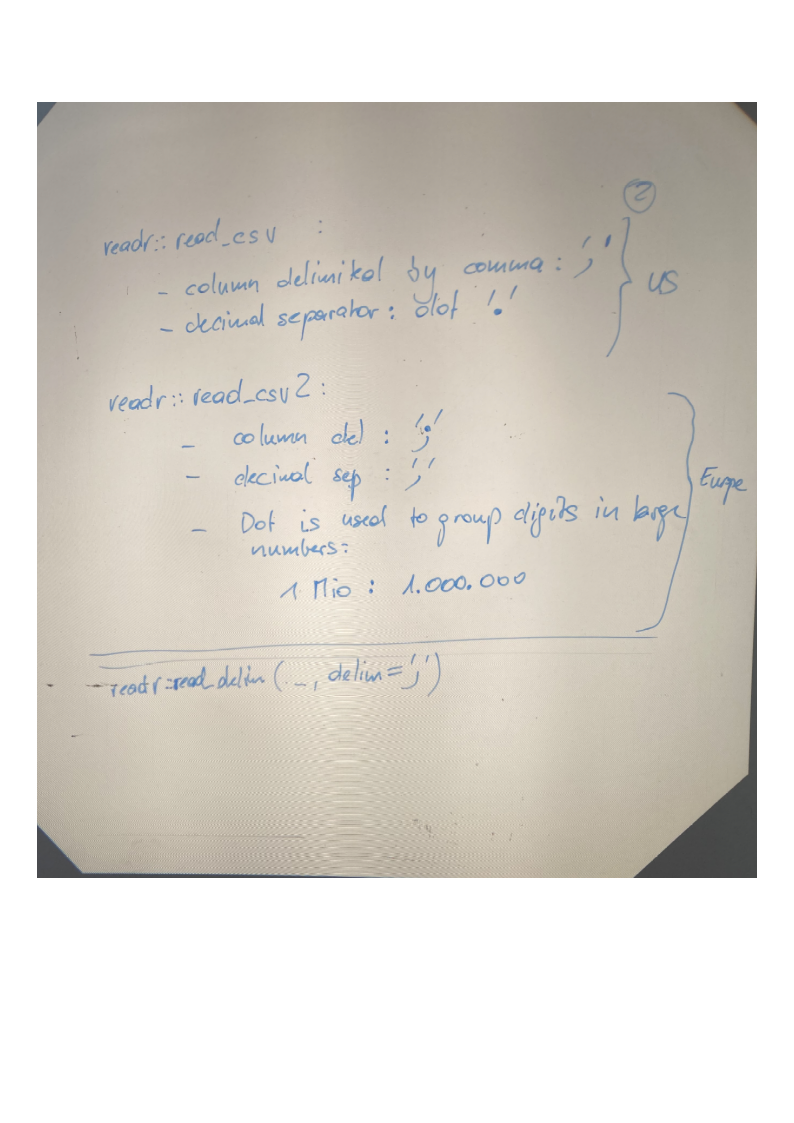 2
readr::read_csv :
- column delimited by comma : ','
- decimal separator : dot '.'
US
readr::read_csv2 :
- column del : ';'
- decimal sep : ','
- Dot is used to group digits in large
numbers:
1 Mio : 1.000.000
Europe
readr::read_delim ( _, delim = ',')